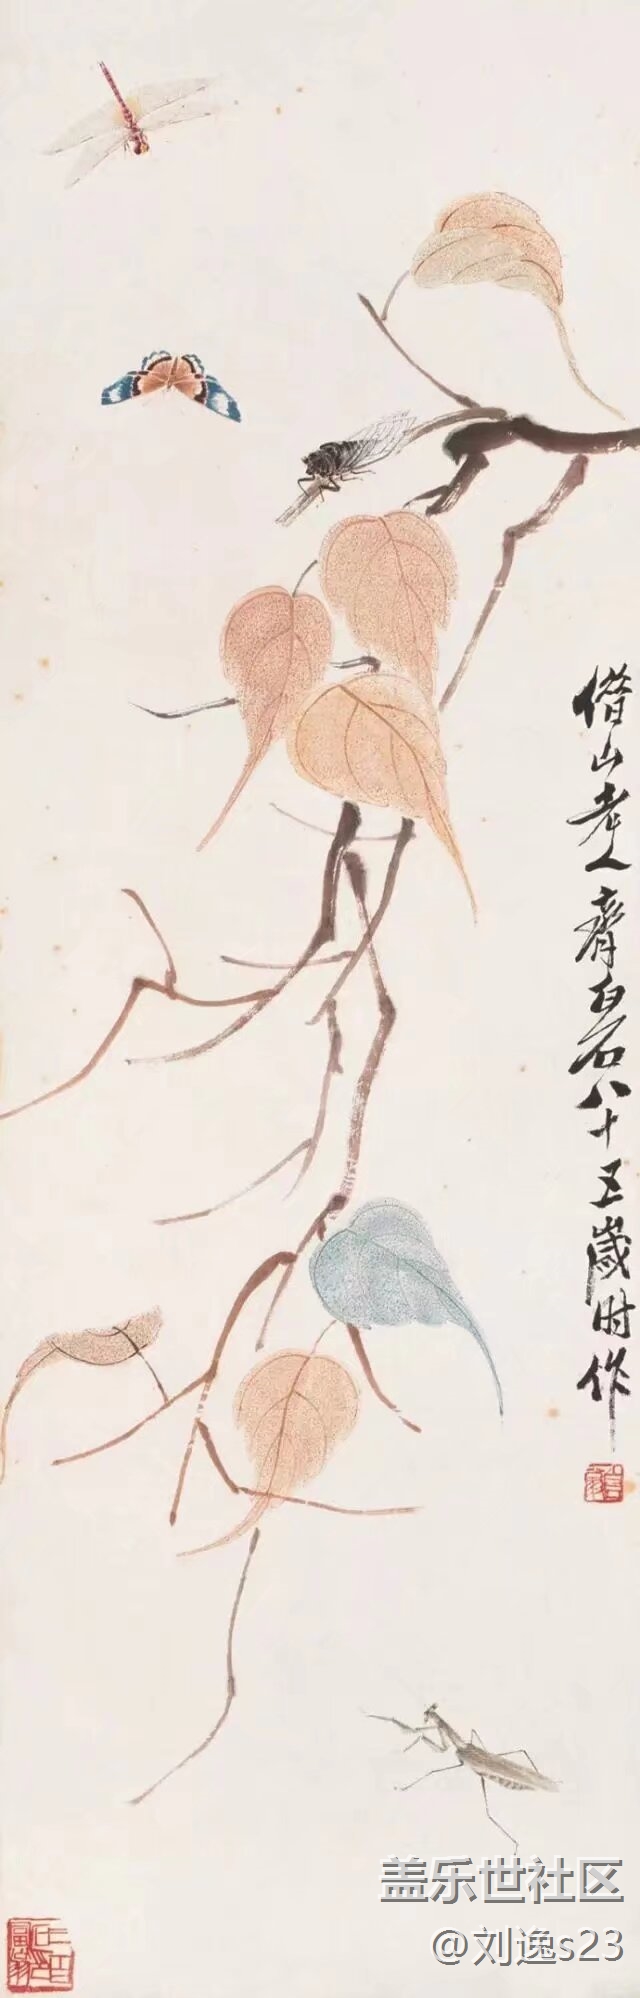 借山老人齊白石八十五歲时作
盖乐世社区
@刘逸s23